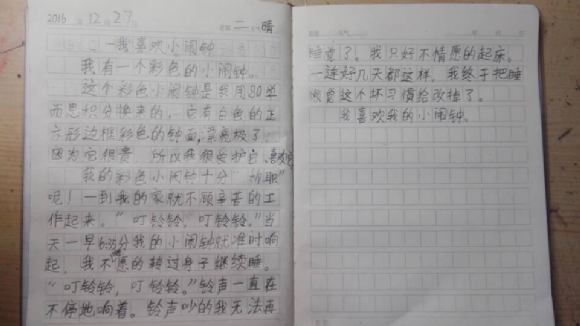 2016 12 27 二 晴
我喜欢小闹钟
我有一个彩色的小闹钟。
这个彩色小闹钟是我用80学
而思积分换来的，它有白色的正
方形边框彩色的钟面，漂亮极了
因为它很贵，所以我很爱护它，喜欢它
我的彩色小闹钟十分“称职”
呢！一到我的家就不顾辛苦的工
作起来。“叮铃铃，叮铃铃。”当
天一早6:35分我的小闹钟就准时响
起，我不情愿的转过身子继续睡。
“叮铃铃，叮铃铃。”铃声一直在
不停地响着。铃声吵的我无法再
睡觉了。我只好不情愿的起床。
一连好几天都这样，我终于把睡
懒觉这个坏习惯给改掉了。
我喜欢我的小闹钟。